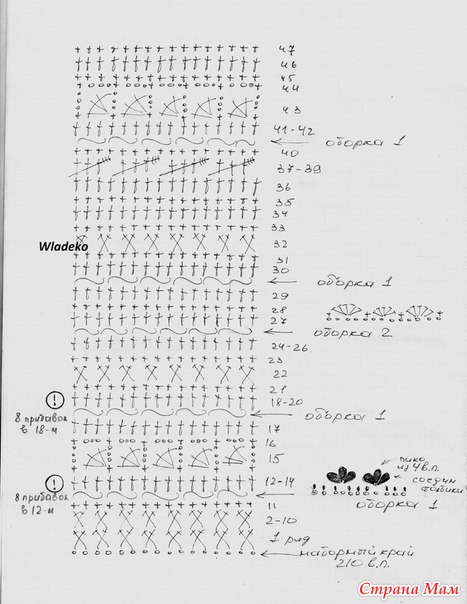 47
46
45
44
43
41-42
оборка 1
40
37-39
36
35
34
33
Wladeko
32
31
30
оборка 1
29
28
27
оборка 2
24-26
23
22
21
18-20
8 прибавок
в 18-м
оборка 1
17
16
15
пико
из 4 в.п.
соедин
столбики
12-14
8 прибавок
в 12-м
оборка 1
11
2-10
1 ряд
наборный край
210 в.п.
Страна Мам